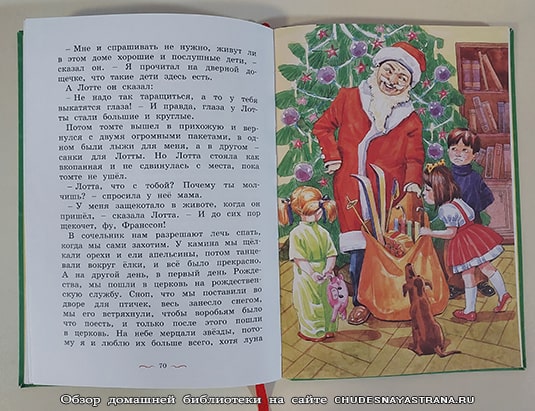 – Мне и спрашивать не нужно, живут ли
в этом доме хорошие и послушные дети, –
сказал он. – Я прочитал на дверной до-
щечке, что такие дети здесь есть.
А Лотте он сказал:
– Не надо так таращиться, а то у тебя
выкатятся глаза! – И правда, глаза у Лот-
ты стали большие и круглые.
Потом томте вышел в прихожую и вер-
нулся с двумя огромными пакетами, в од-
ном были лыжи для меня, а в другом –
санки для Лотты. Но Лотта стояла как
вкопанная и не сдвинулась с места, пока
томте не ушёл.
– Лотта, что с тобой? Почему ты мол-
чишь? – спросила у неё мама.
– У меня защекотало в животе, когда он
пришёл, – сказала Лотта. – И до сих пор
щекочет, фу, Франссон!
В сочельник нам разрешают лечь спать,
когда мы сами захотим. У камина мы щёл-
кали орехи и ели апельсины, потом танце-
вали вокруг ёлки, и всё было прекрасно.
А на другой день, в первый день Рожде-
ства, мы пошли в церковь на рождествен-
скую службу. Сноп, что мы поставили во
дворе для птичек, весь занесло снегом,
мы его встряхнули, чтобы воробьям было
что поесть, и только после этого пошли
в церковь. На небе мерцали звёзды, пото-
му я и люблю их больше всего, хотя луна
70
Обзор домашней библиотеки на сайте CHUDESNAYASTRANA.RU